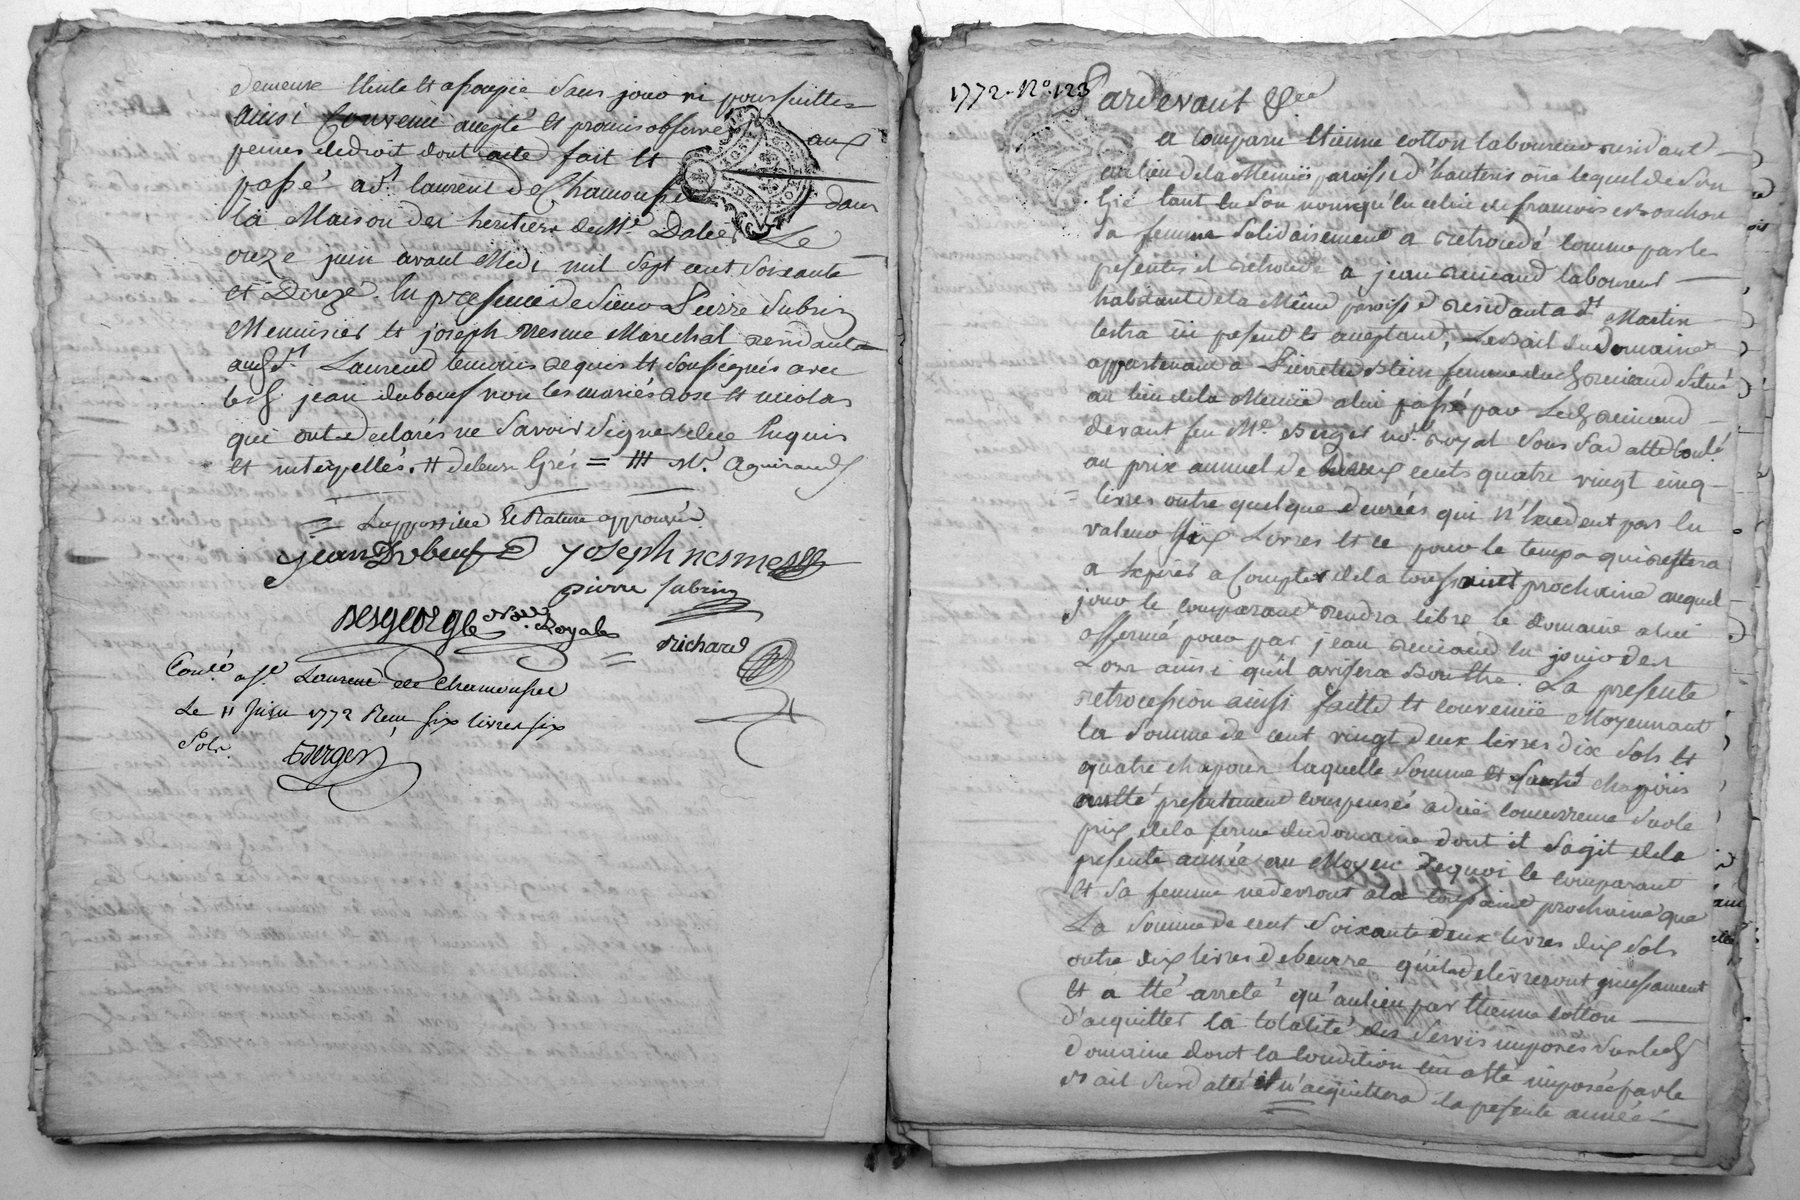 demeure éteinte et assoupie sans jour ni poursuittes
ainsi convenu accepté et promis observer aux
peines de droit dont acte fait et
passé a St. laurent de Chamousset dans
la Maison des heritiers du Mr. Le
onze juin avant Midi mil sept cent soixante
et Douze. En presence de sieur Pierre Subrin
Menuisier et joseph nesme Marechal residants
aud St. Laurent temoins requis et soussignés avec
led. jean duboeuf non les mariés et nicolas
qui ont declarés ne savoir signer de ce Enquis
et interpellés. de leur Grés =
approuvée
jean Dubeuf joseph nesme
pierre subrin
Desgeorge Nore. Royal
Richard
Con.lé a St. Laurent de Chamousset
Le 11 Juin 1772 Reçu six livres six
sols Berger
1772. No. 123 Pardevant &ca
a comparu Etienne cotton laboureur residant
au lieu de la paroisse d'hauterivoire lequel de son
Gré tant En son nom qu'En celui de francoise
sa femme solidairement a retrocedé comme par les
presentes il retrocede a jean laboureur
habitant de la Même paroisse residant a St Martin
lestra ici present et acceptant, Le Bail du Domaine
appartenant a Pierrette Blein femme dud. situé
au lieu de la a lui passé par Led.
devant feu Me. Berger nore. royal sous sa datte Conlé
au prix annuel de Deux cent quatre vingt cinq
livres outre quelque denrées qui n'Excedent pas En
valeur six Livres et ce pour le temps qui restera
a Expirer a Compter de la toussaint prochaine auquel
jour le comparant rendra libre le Domaine a lui
affermé pour par jean En jouir des
Lors ainsi qu'il avisera Bon Etre. La presente
retrocession ainsi faitte et convenüe Moyennant
la somme de cent vingt deux livres dix sols et
quatre chapons laquelle somme et chapons
ont Eté presentement compensés a düe concurrence sur le
prix de la ferme du domaine dont il s'agit de la
presente année au Moyen Dequoi le comparant
et sa femme ne devront a la toussaint prochaine que
La somme de cent soixante deux livres dix sols
outre dix livres de beurre qu'ils delivreront
et a Eté arreté qu'au lieu par Etienne cotton
d'acquitter la totalité des servis imposés sur led.
domaine dont la Condition lui a Eté imposée par le
Bail susdatté il n'acquittera la presente année